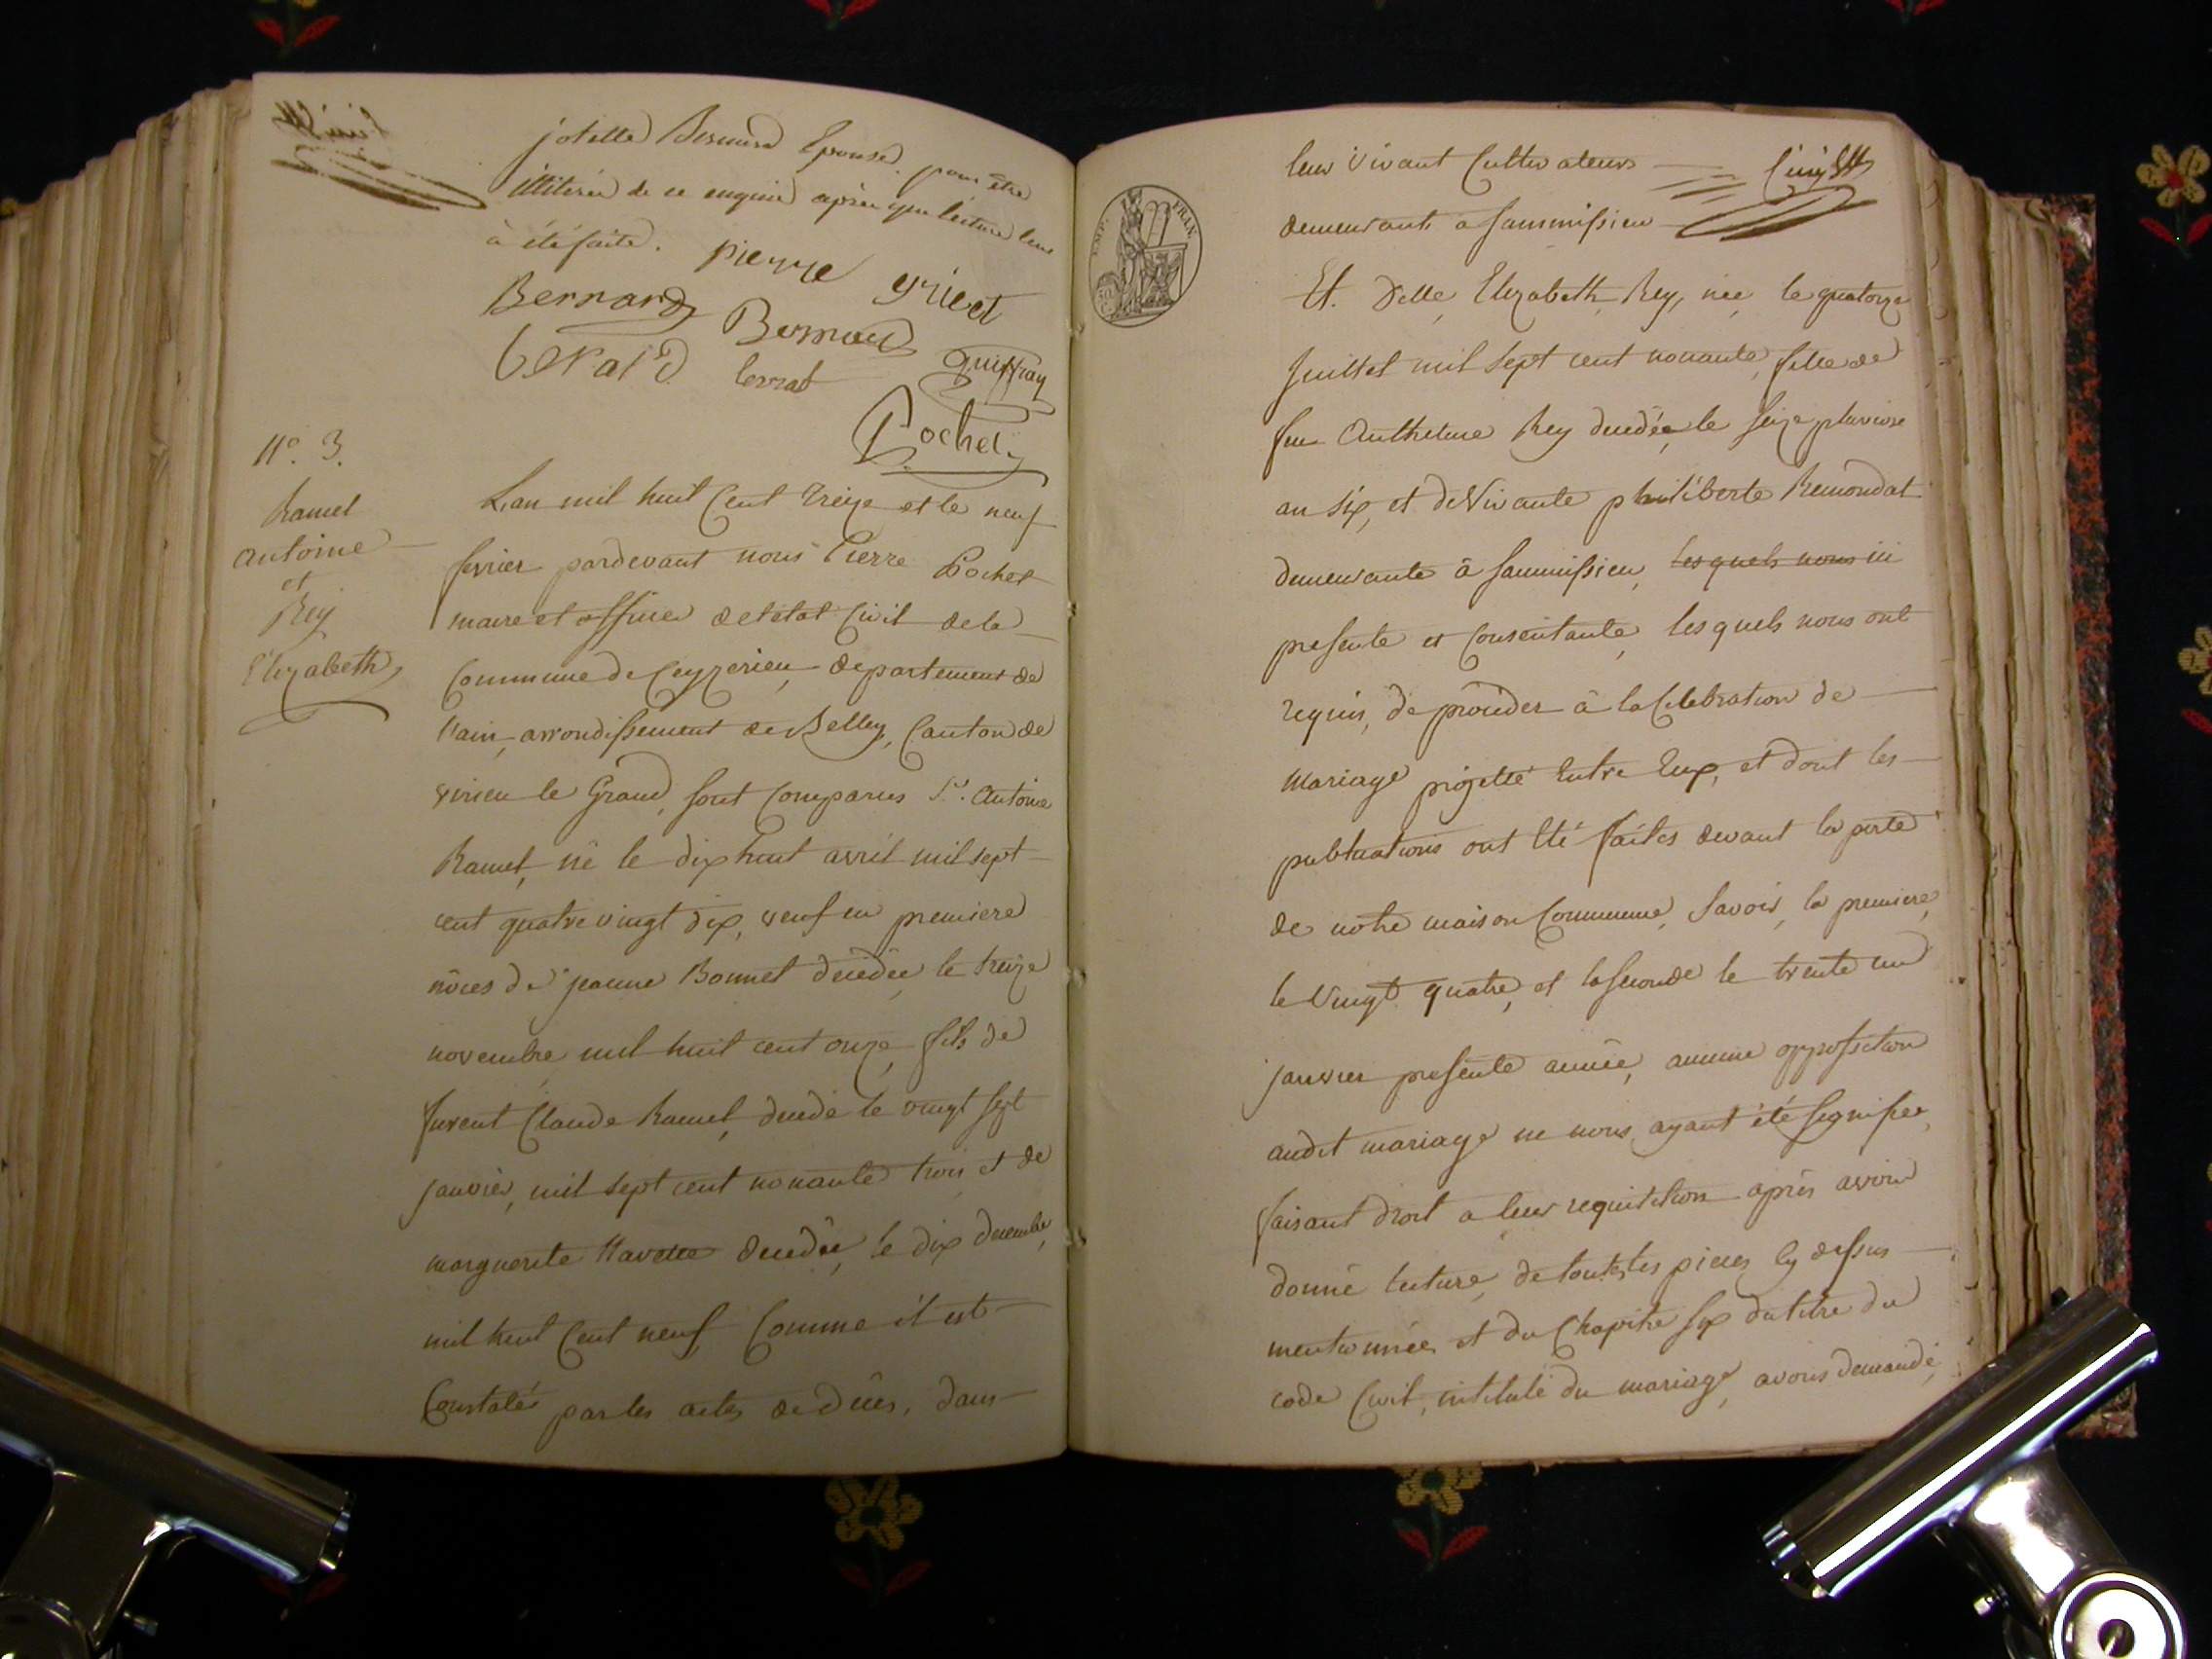 josette Bernard Epouse pour être
illitérée de ce enquise après que lecture leur
à été faite. pierre griect
Bernard Bernard
levrat guiffray
Pochet
N°. 3.
Ramel
antoine
et
Rey
Elizabeth
L'an mil huit Cent treize et le neuf
fevrier pardevant nous Pierre Pochet
maire et officier de létat Civil de la
Commune de Ceyzerieu, departement de
l'ain, arrondissement de Belley, Canton de
virieu le Grand, sont Comparus Sr. Antoine
Ramel, né le dix huit avril mil sept
cent quatre vingt dix, veuf en premiere
nôces de jeanne Bonnet décédée, le treize
novembre mil huit cent onze, fils de
furent Claude Ramel, decedé le vingt sept
janvier, mil sept cent nonante trois et de
marguerite decedée, le dix decembre,
mil huit Cent neuf Comme il est
Constaté par les actes de décès, dans
leur vivant Cultivateurs
demeurant a Sammissieu
EMP. FRAN.
Et Delle Elizabeth Rey, née le quatorze
Juillet mil sept cent nonante, fille de
feu Anthelme Rey decedée le seize pluviose
an six, et de vivante philiberte Remondat
demeurante à Sammissieu, lesquels nous ici
presente et Consentante, lesquels nous ont
requis, de procéder à la Célébration de
mariage projetté Entre Eux, et dont les
publications ont Eté faites devant la porte
de notre maison Commune, Savoir, la premiere
le Vingt quatre, et la seconde le trente un
janvier presente année, aucune opposition
audit mariage ne nous ayant été signifiee,
faisant droit a leur requisition après avoir
donné lecture, de toutes les pieces Cy dessus
mentionnée et du Chapitre Six du titre du
code Civil, intitulé du mariage, avons demandé,